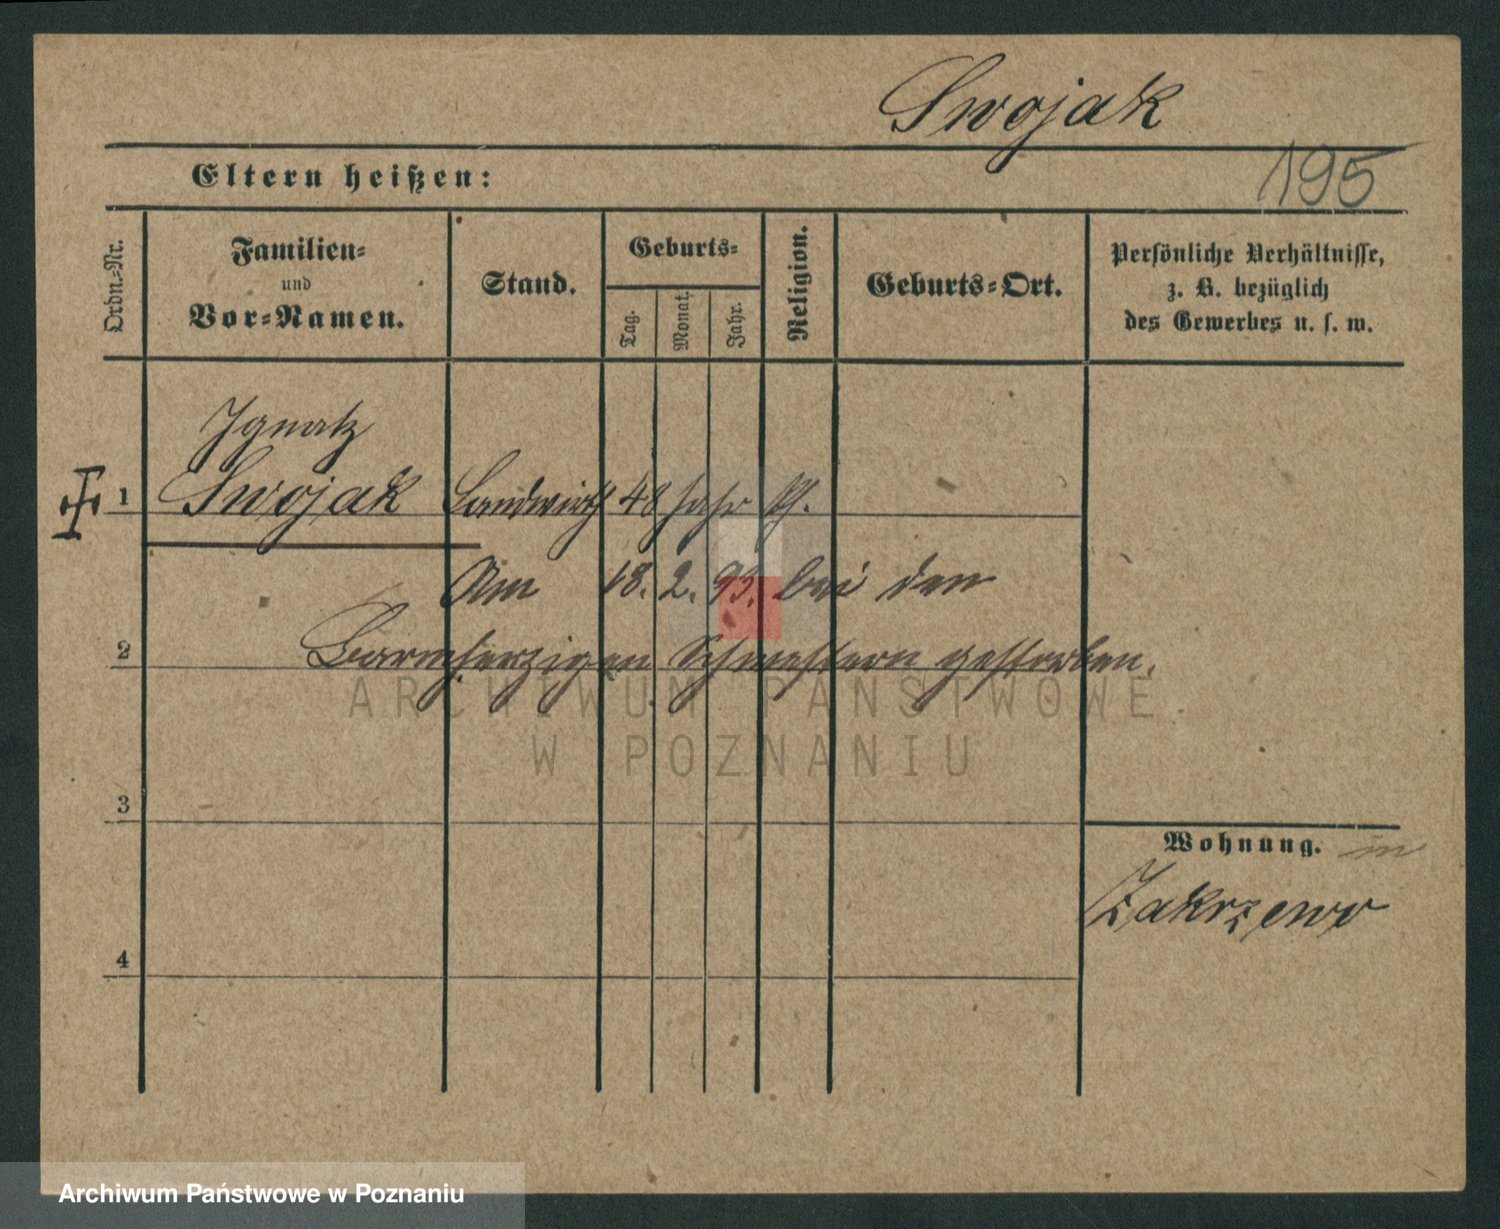 Swojak
195
Eltern heißen:
Ordn.-Nr.
Familien-
und
Vor-Namen.
Stand.
Geburts-
Tag.
Monat.
Jahr.
Religion.
Geburts-Ort.
Persönliche Verhältnisse,
z. B. bezüglich
des Gewerbes u. s. w.
Ignatz
1 Swojak Landwirth 48 Jahr kth.
Am 18. 2. 93. bei den
2 Barmherzigen Schwestern gestorben.
ARCHIWUM PAŃSTWOWE
W POZNANIU
3
Wohnung. in
Zakrzewo
4
Archiwum Państwowe w Poznaniu